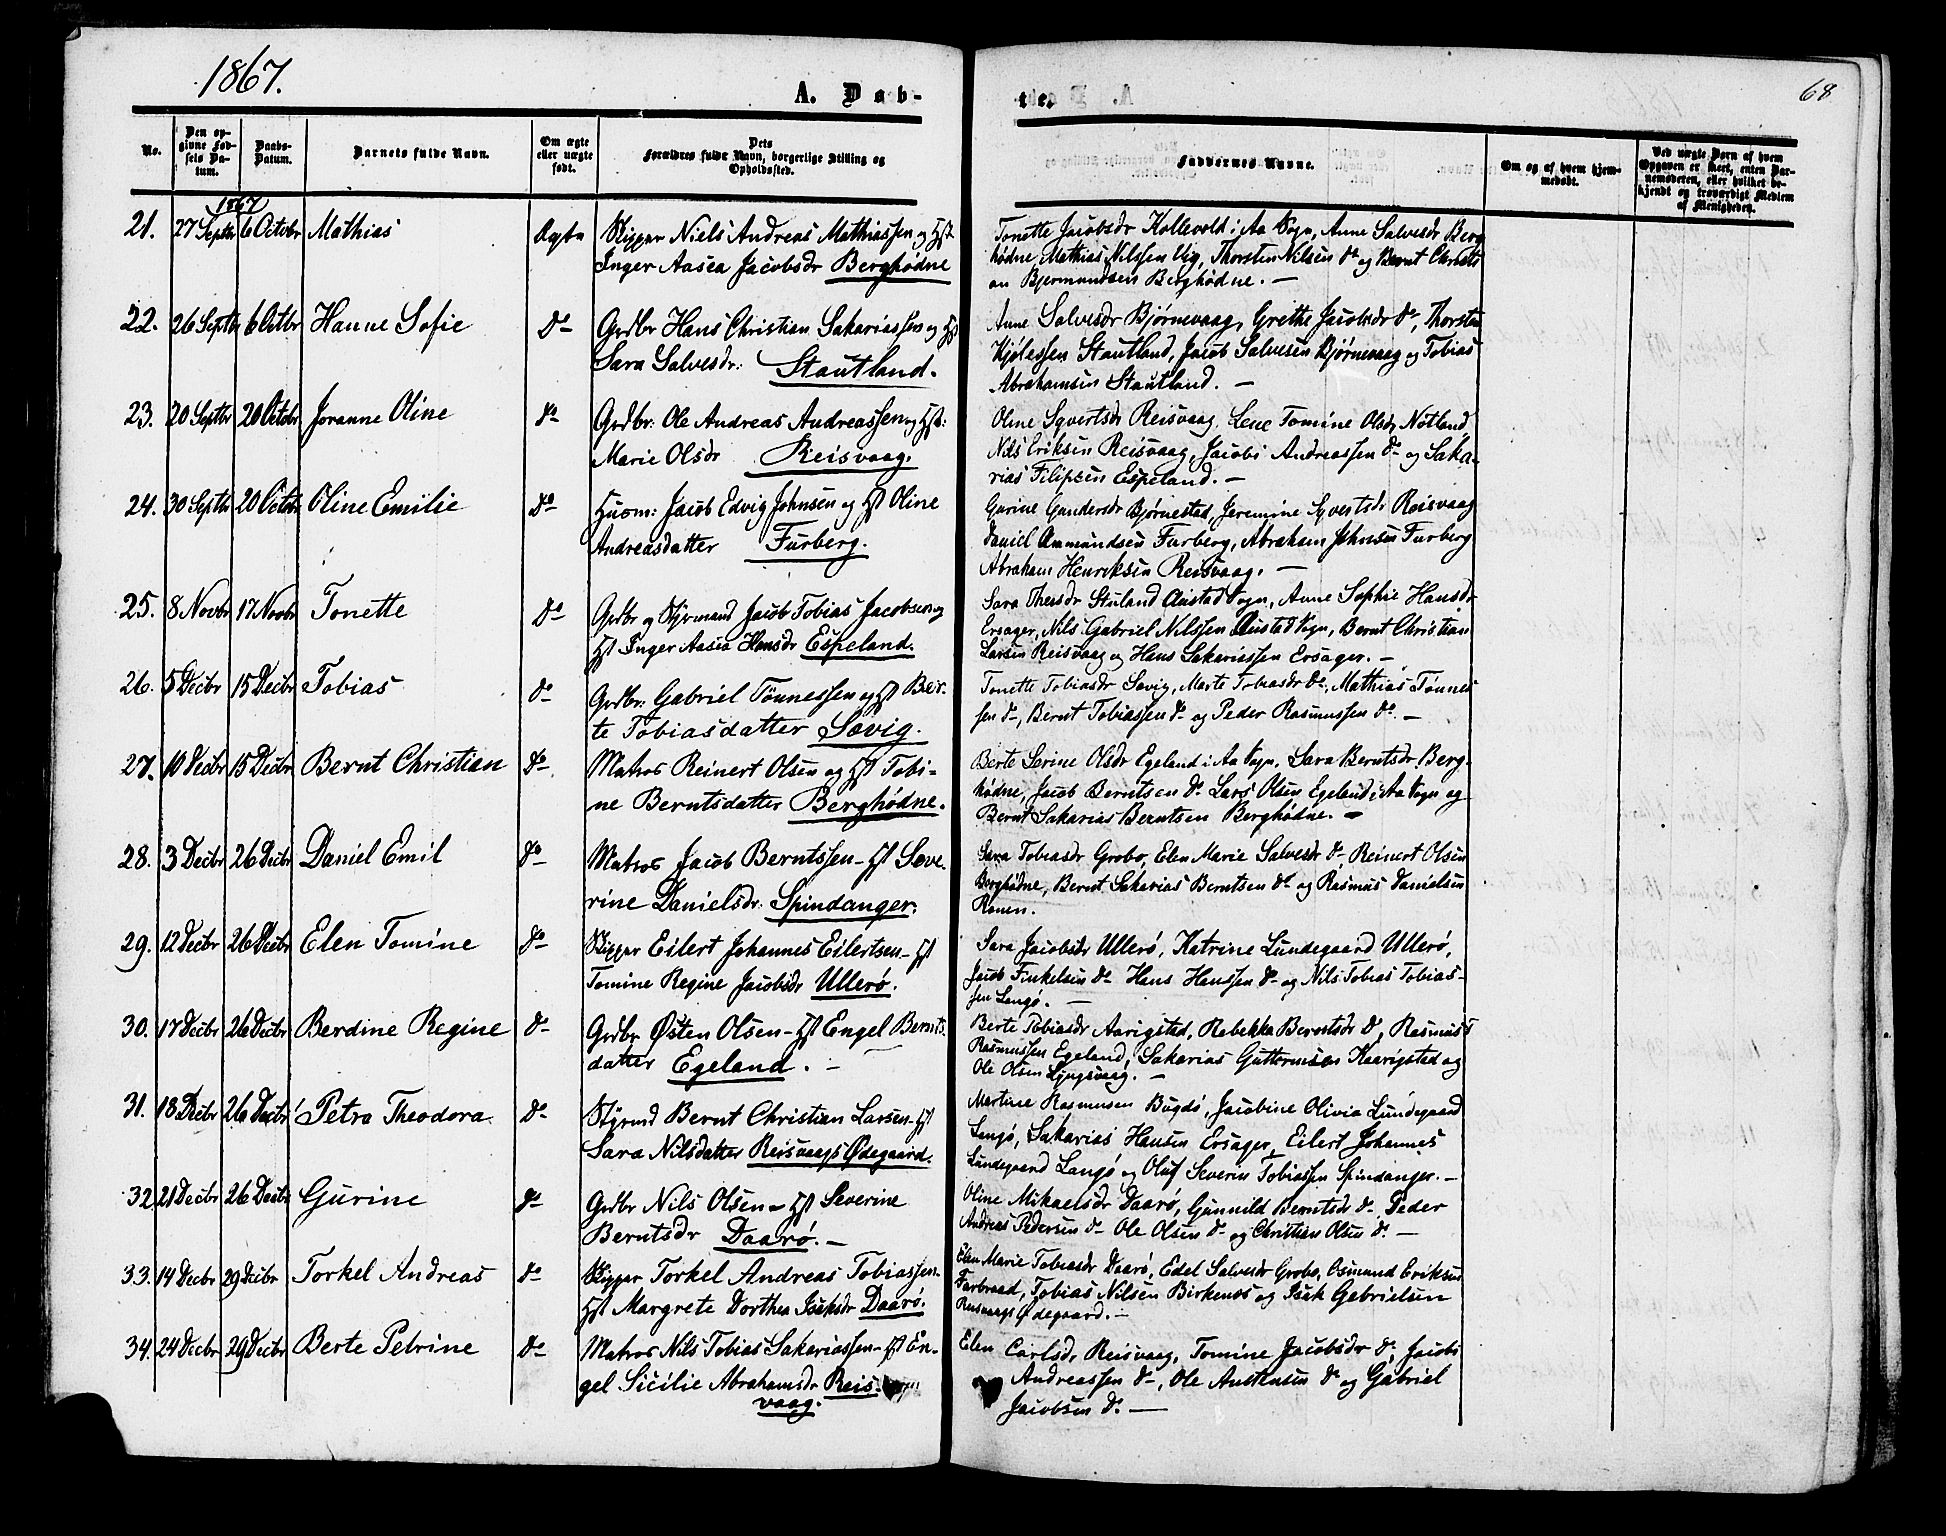 1867.
A. Dab-
te.
68
No.
Den op-
givne Fød-
sels Da-
tum.
Daabs-
Datum.
Barnets fulde Navn.
Om ægte
eller uægte
født.
Dets
Forældres fulde Navn, borgerlige Stilling og
Opholdssted.
Faddernes Navne.
Om og af hvem hjem-
medøbt.
Ved uægte Børn af hvem
Opgaven er skeet, enten Bar-
nemoderen, eller hvilket be-
kjendt og troværdigt Medlem
af Menigheden.
1867
21. 27 Septbr 6 Octobr Mathias Ægte Skipper Niels Andreas Mathiassen og Hst
Inger Aasea Jacobsdr Berghødne
Tonette Jacobsdr Kollevold i Aa Sogn, Anne Salvesdr Berg
hødne, Mathias Nilssen Vig, Thorsten Nilsen do og Bernt Christi
an Bjermundsen Berghødne. —
22. 26 Septbr 6 Octbr Hanne Sofie Do Grdbr Hans Christian Sakariassen og Hst
Sara Salvesdr: Stautland.
Anne Salvesdr Bjørnevaag, Grethe Jacobsdr do, Thorsten
Kjølessen Stautland, Jacob Salvesen Bjørnevaag og Tobias
Abrahamsen Stautland. —
23. 20 Septbr 20 Octbr Joranne Oline do Grdbr: Ole Andreas Andreassen og Hst:
Marie Olsdr Reisvaag.
Oline Syvertsdr Reisvaag, Lene Tomine Olsdr Nøtland
Nils Eriksen Reisvaag, Jacobi Andreassen do og Saka-
rias Filipsen Espeland. —
24. 30 Septbr 20 Octbr Oline Emilie Do Huom: Jacob Edvig Johnsen og Hst Oline
Andreasdatter Furberg.
Gurine Gundersdr Bjørnestad, Jeremine Syvertsdr Reisvaag
Daniel Ommundsen Furberg, Abraham Johnsen Furberg
Abraham Henriksen Reisvaag. —
25. 8 Novbr 17 Novbr Tonette Do Grdbr og Styrmand Jacob Tobias Jacobsen og
Hst Inger Aasea Hansdr Espeland.
Sara Theisdr Stuland Austad Sogn, Anne Sophie Hansdr
Ersager, Nils Gabriel Nilssen Austad Sogn, Bernt Christian
Larsen Reisvaag og Hans Sakariassen Ersager. —
26. 5 Decbr 15 Decbr Tobias do Grdbr: Gabriel Tønnessen og Hst Ber-
te Tobiasdatter Sævig.
Tonette Tobiasdr Sævig, Marte Tobiasdr do, Mathias Tønnes
sen do, Bernt Tobiassen do og Peder Rasmussen do. —
27. 10 Decbr 15 Decbr Bernt Christian Do Matros Reinert Olsen og Hst Tobi-
ne Berntsdatter Berghødne.
Berte Serine Olsdr Egeland i Aa Sogn, Sara Berntsdr Berg-
hødne, Jacob Berntsen do Lars Olsen Egeland i Aa Sogn og
Bernt Sakarias Berntsen Berghødne. —
28. 3 Decbr 26 Decbr Daniel Emil do Matros Jacob Berntssen – Hst Seve-
rine Danielsdr: Spindanger.
Sara Tobiasdr Grobo, Elen Marie Salvesdr do Reinert Olsen
Berghødne, Bernt Sakarias Berntsen do og Rasmus Danielsen
Ronen.
29. 12 Decbr 26 Decbr Elen Tomine do Skipper Eilert Johannes Eilertsen – Hst
Tomine Regine Jacobsdr Ullerø.
Sara Jacobsdr Ullerø, Katrine Lundegaard Ullerø,
Jacob Finkelsen do Hans Hanssen do og Nils Tobias Tobias-
sen Langø. —
30. 17 Decbr 26 Decbr Berdine Regine do Grdbr Østen Olsen – Hst Engel Bernts-
datter Egeland. —
Berte Tobiasdr Aarigstad, Rebekka Berntsdr do, Rasmus
Rasmussen Egeland, Sakarias Guttormsen Kaarigstad og
Ole Olsen Ljugsvaag. —
31. 18 Decbr 26 Decbr Petra Theodora do Styrmd Bernt Christian Larsen – Hst
Sara Nilsdatter Reisvaags Ødegaard.
Martine Rasmusen Bugdø, Jacobine Olivia Lundegaard
Langø, Sakarias Hansen Ersager, Eilert Johannes
Lundegaard Langø og Oluf Severin Tobiassen Spindanger. —
32 21 Decbr 26 Decbr Gurine do Grdbr Nils Olsen – Hst Severine
Berntsdr Daarø. —
Oline Mikaelsdr Daarø, Gunnild Berntsdr do Peder
Andreas Pedersen do Ole Olsen do og Christian Olsen do. —
33. 14 Decbr 29 Decbr Torkel Andreas do Skipper Torkel Andreas Tobiassen –
Hst Margrete Dorthea Isaksdr Daarø.
Elen Marie Tobiasdr Daarø, Edel Salvesdr Grobo, Osmund Eriksen
Farbrod, Tobias Nilsen Birkenes og Isak Gabrielsen
Reisvaags Ødegaard. —
34. 24 Decbr 29 Decbr Berte Petrine Do Matros Nils Tobias Sakariassen – Hst En-
gel Sicilie Abrahamsdr Reis-
vaag.
Elen Carlsdr Reisvaag, Tomine Jacobsdr do, Jacobi
Andreassen do, Ole Austensen do og Gabriel
Jacobsen do. —